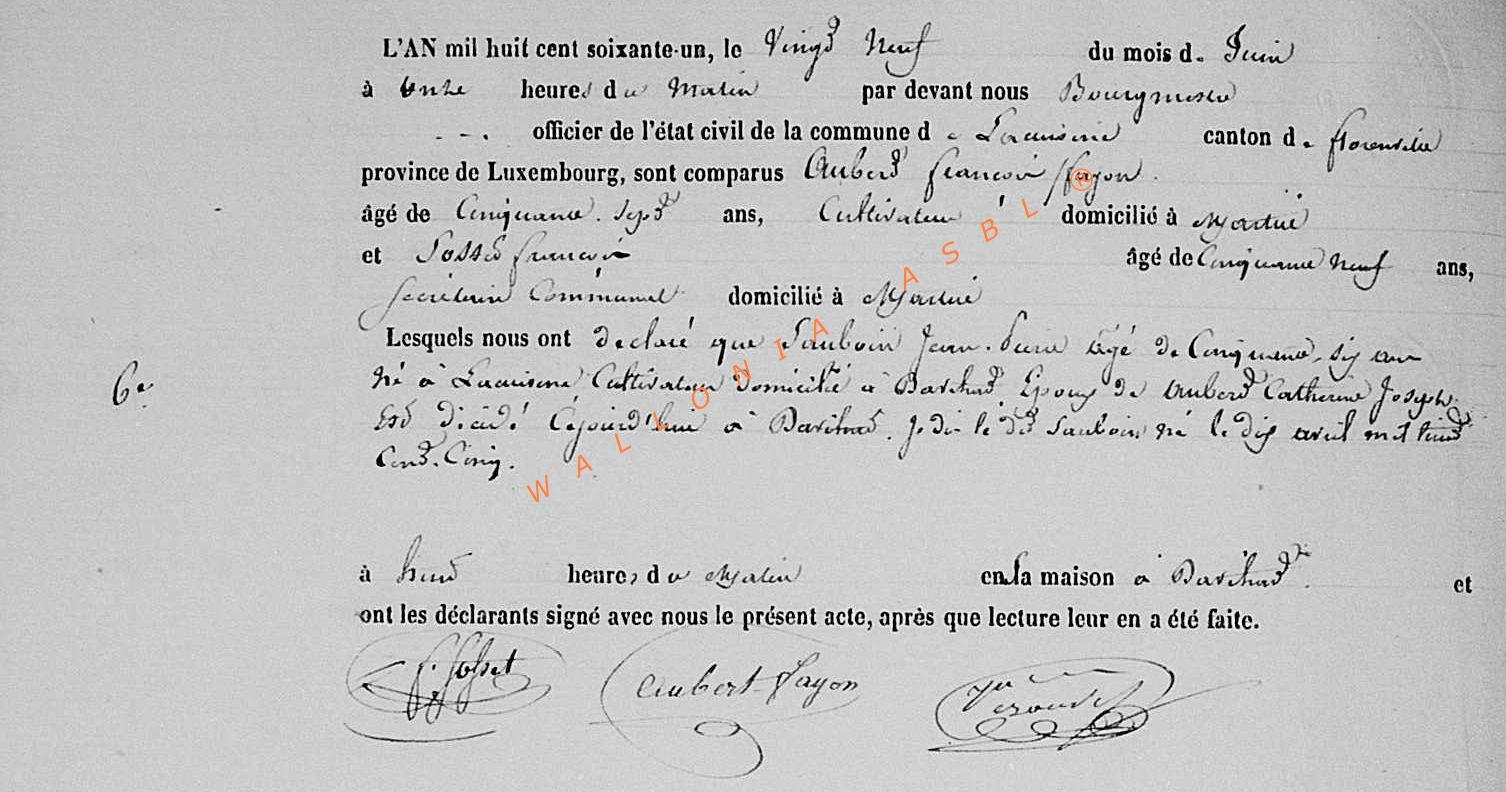 L'AN mil huit cent soixante-un, le Vingt Neuf du mois de Juin
à Onze heures du Matin par devant nous Bourgmestre
officier de l'état civil de la commune de Lacuisine canton de florenville
province de Luxembourg, sont comparus Aubert françois / fayon.
âgé de Cinquante. Sept ans, Cultivateur domicilié à Martué
et Josset françois âgé de Cinquante Neuf ans,
Secrétaire Communal domicilié à Martué
Lesquels nous ont declaré que Jean. Pierre agé de Cinquante. Six ans
6e.
Né à Lacuisine Cultivateur domicilié à Epoux de Aubert Catherine Joseph.
Est dicidé Cejourd'hui à Je dis le dit né le dix avril mil huit
Cent. Cinq.
à huit heures du Matin en sa maison à et
ont les déclarants signé avec nous le présent acte, après que lecture leur en a été faite.
f. Josset Aubert-fayon
WALLONIA ASBL ®